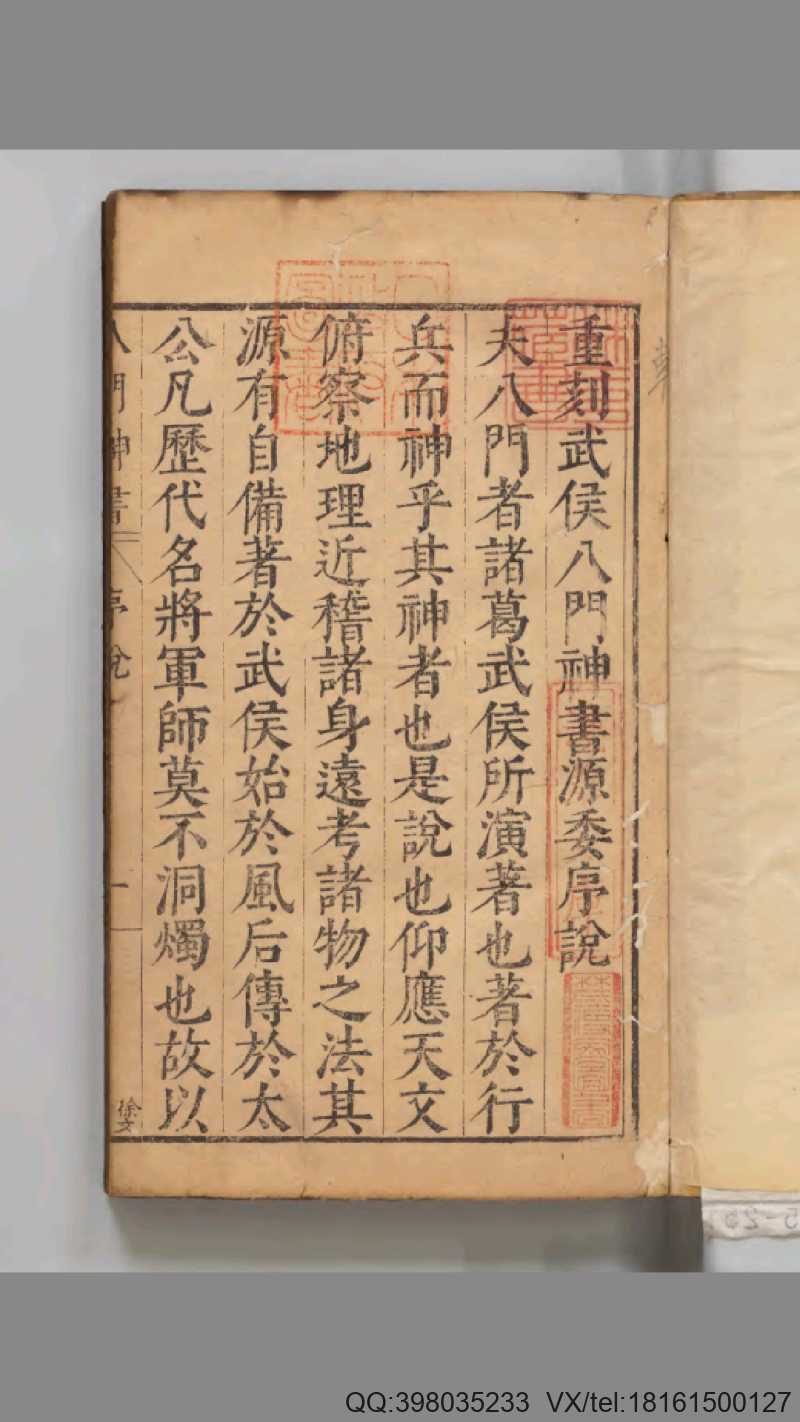 重刻武侯八門神書源委序說
夫八門者諸葛武侯所演著也著於行
兵而神乎其神者也是說也仰應天文
俯察地理近稽諸身遠考諸物之法其
源有自備著於武侯始於風后傳於太
公凡歷代名將軍師莫不洞燭也故以
八門神書
序說
一
QQ:398035233 VX/tel:18161500127